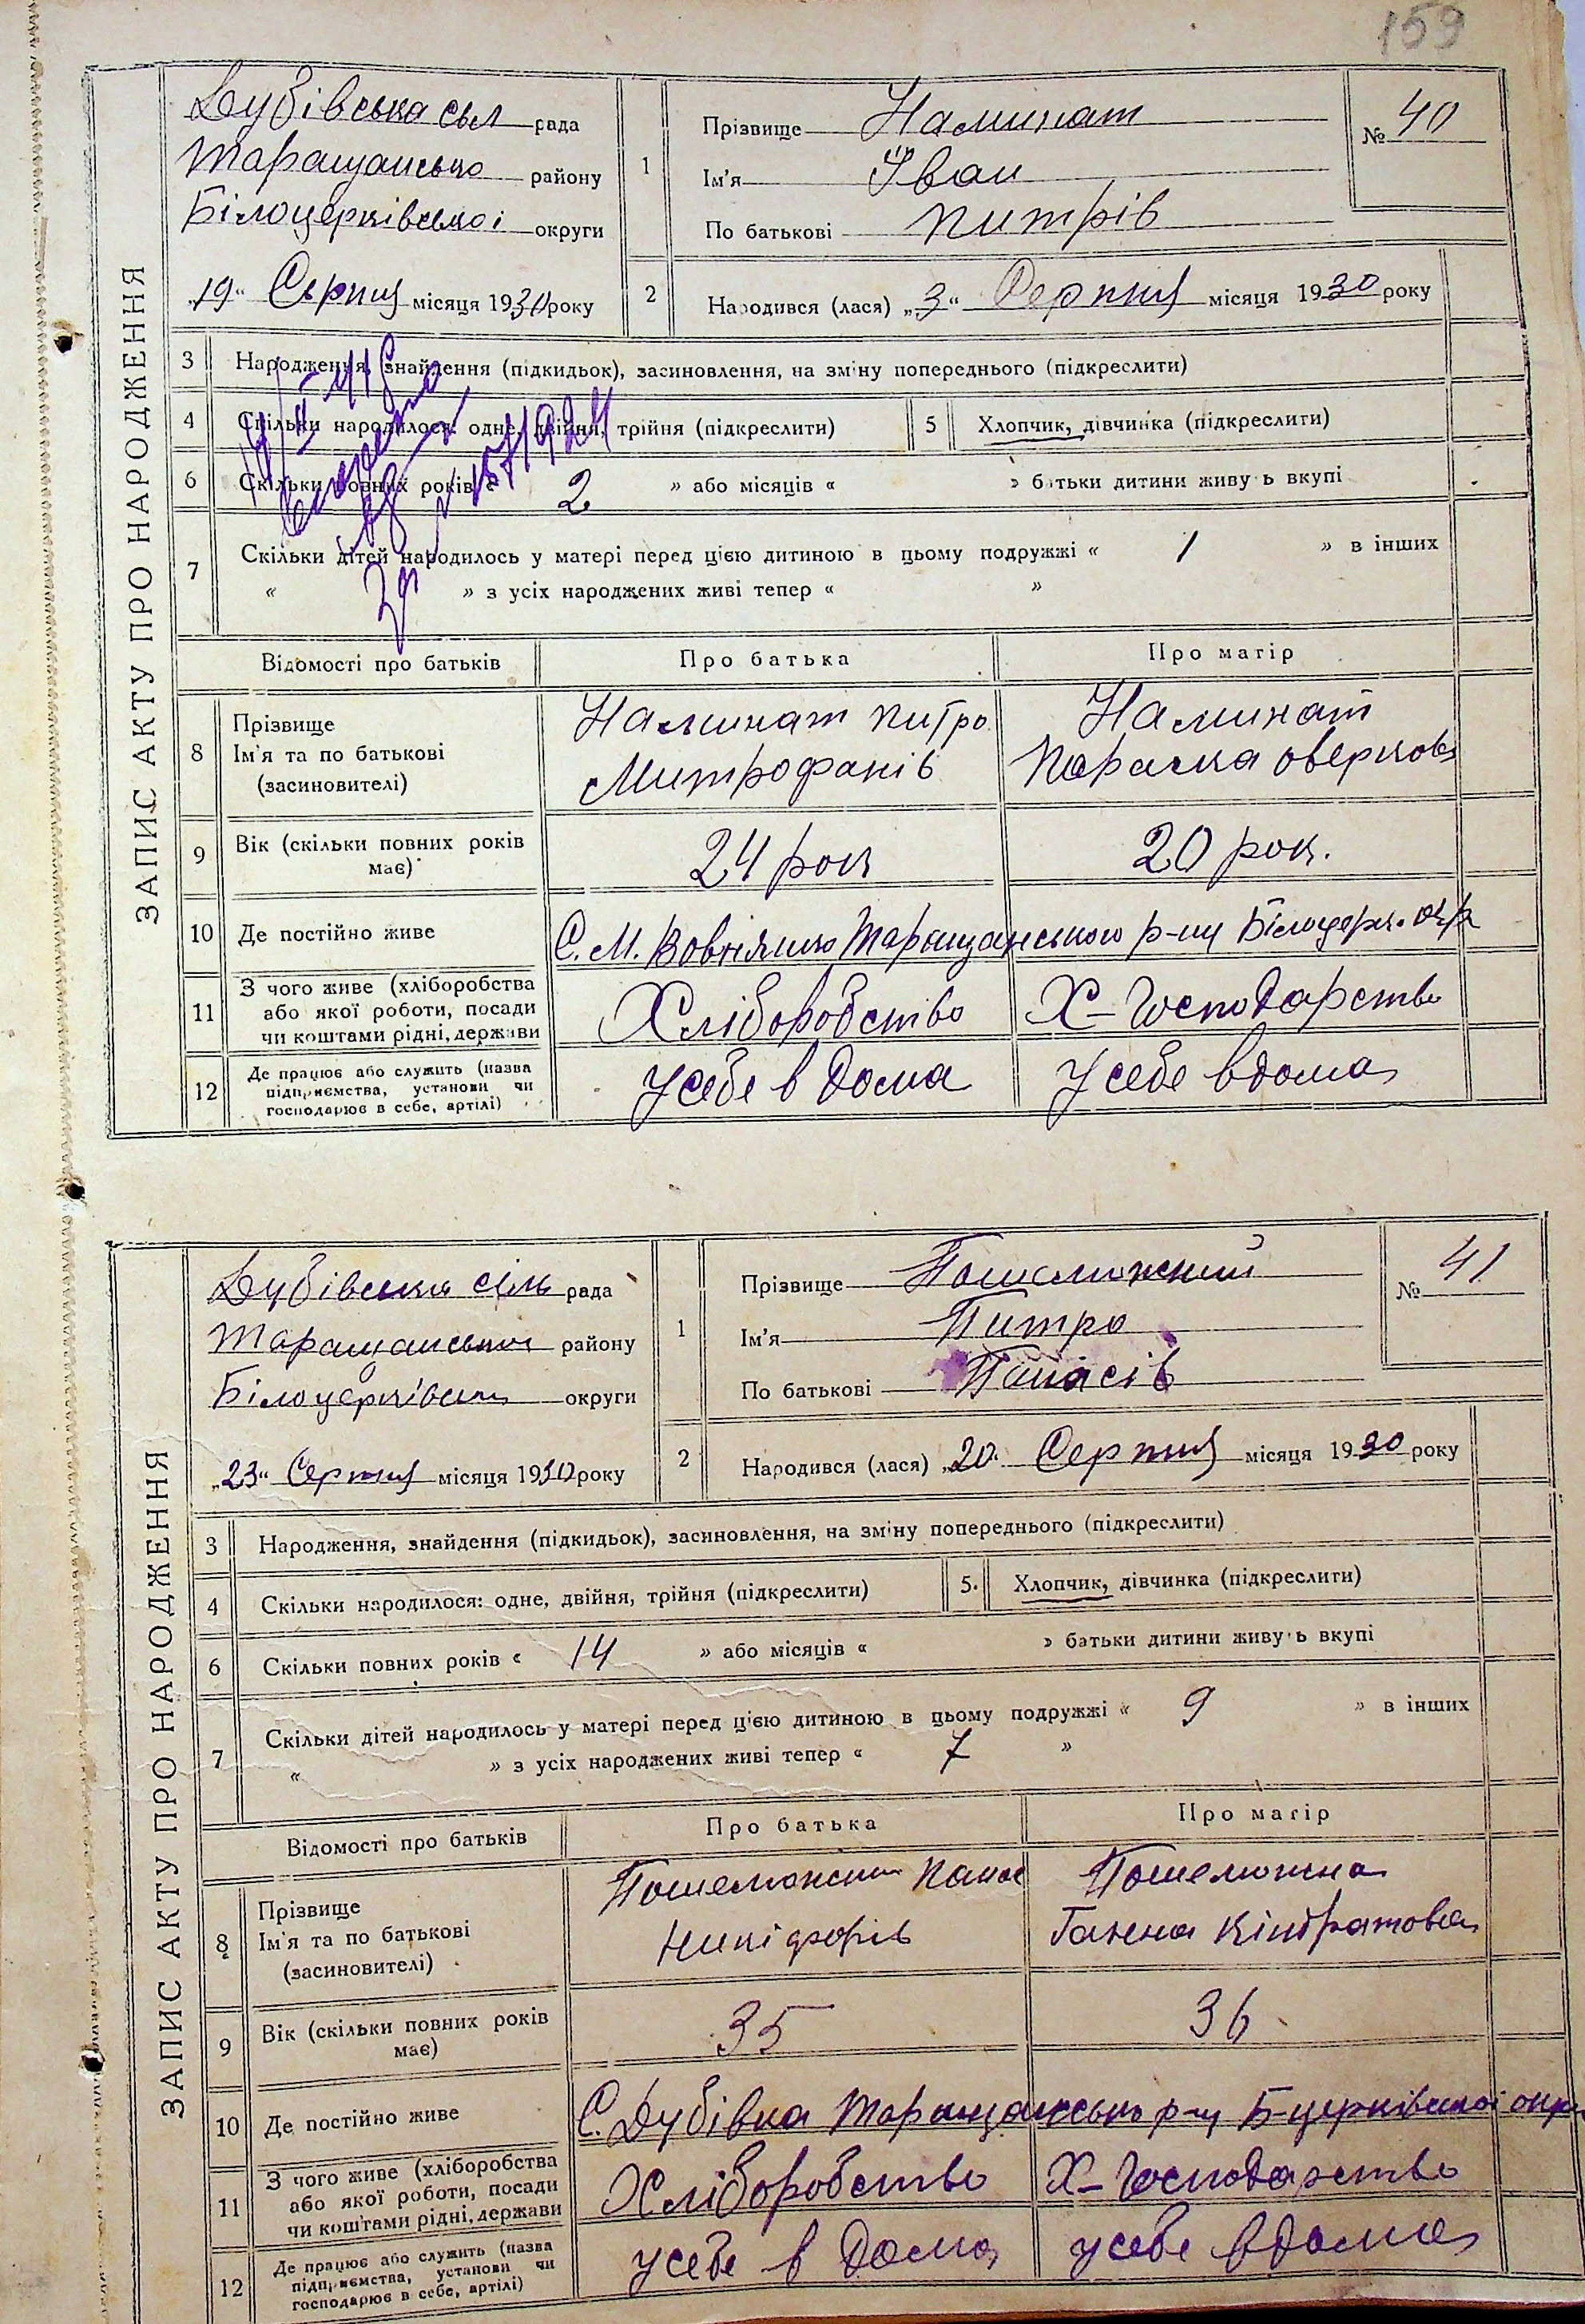 159
ЗАПИС АКТУ ПРО НАРОДЖЕННЯ
Дубівська сил рада
Таращансько району
Білоцерківської округи
„19“ Серпня місяця 1930 року
1
Прізвище Наминат
Ім'я Іван
По батькові Питрів
№ 40
2
Народився (лася) „3“ Серпня місяця 1930 року
3 Народження, знайдення (підкидьок), засиновлення, на зміну попереднього (підкреслити)
4 Скільки народилося: одне, двійня, трійня (підкреслити)
5 Хлопчик, дівчинка (підкреслити)
6 Скільки повних років « 2 » або місяців « » батьки дитини живуть вкупі
7 Скільки дітей народилось у матері перед цією дитиною в цьому подружжі « 1 » в інших
« » з усіх народжених живі тепер « »
Відомості про батьків Про батька Про матір
8 Прізвище Ім'я та по батькові (засиновителі)
Наминат Питро
Митрофанів
Наминат
Параска Оверкова
9 Вік (скільки повних років має) 24 рок 20 рок.
10 Де постійно живе С. М. Вовнянко Таращанського р-ну Білоцерк. окр
11 З чого живе (хліборобства або якої роботи, посади чи коштами рідні, держави
Хліборобство Х-Господарство
12 Де працює або служить (назва підприємства, установи чи господарює в себе, артілі)
у себе в дома у себе вдома
ЗАПИС АКТУ ПРО НАРОДЖЕННЯ
Дубівська сіль рада
Таращансько району
Білоцерківськ округи
„23“ Серпня місяця 1930 року
1
Прізвище Пошелюжний
Ім'я Питро
По батькові Панасів
№ 41
2
Народився (лася) „20“ Серпня місяця 1930 року
3 Народження, знайдення (підкидьок), засиновлення, на зміну попереднього (підкреслити)
4 Скільки народилося: одне, двійня, трійня (підкреслити)
5. Хлопчик, дівчинка (підкреслити)
6 Скільки повних років « 14 » або місяців « » батьки дитини живуть вкупі
7 Скільки дітей народилось у матері перед цією дитиною в цьому подружжі « 9 » в інших
« » з усіх народжених живі тепер « 7 »
Відомості про батьків Про батька Про матір
8 Прізвище Ім'я та по батькові (засиновителі)
Пошелюжний Панас
Никіфорів
Пошелюжна
Ганна Кіндратова
9 Вік (скільки повних років має) 35 36
10 Де постійно живе С. Дубівка Таращансько р-ну Б-церківської окр
11 З чого живе (хліборобства або якої роботи, посади чи коштами рідні, держави
Хліборобство Х-Господарство
12 Де працює або служить (назва підприємства, установи чи господарює в себе, артілі)
у себе в дома у себе вдома